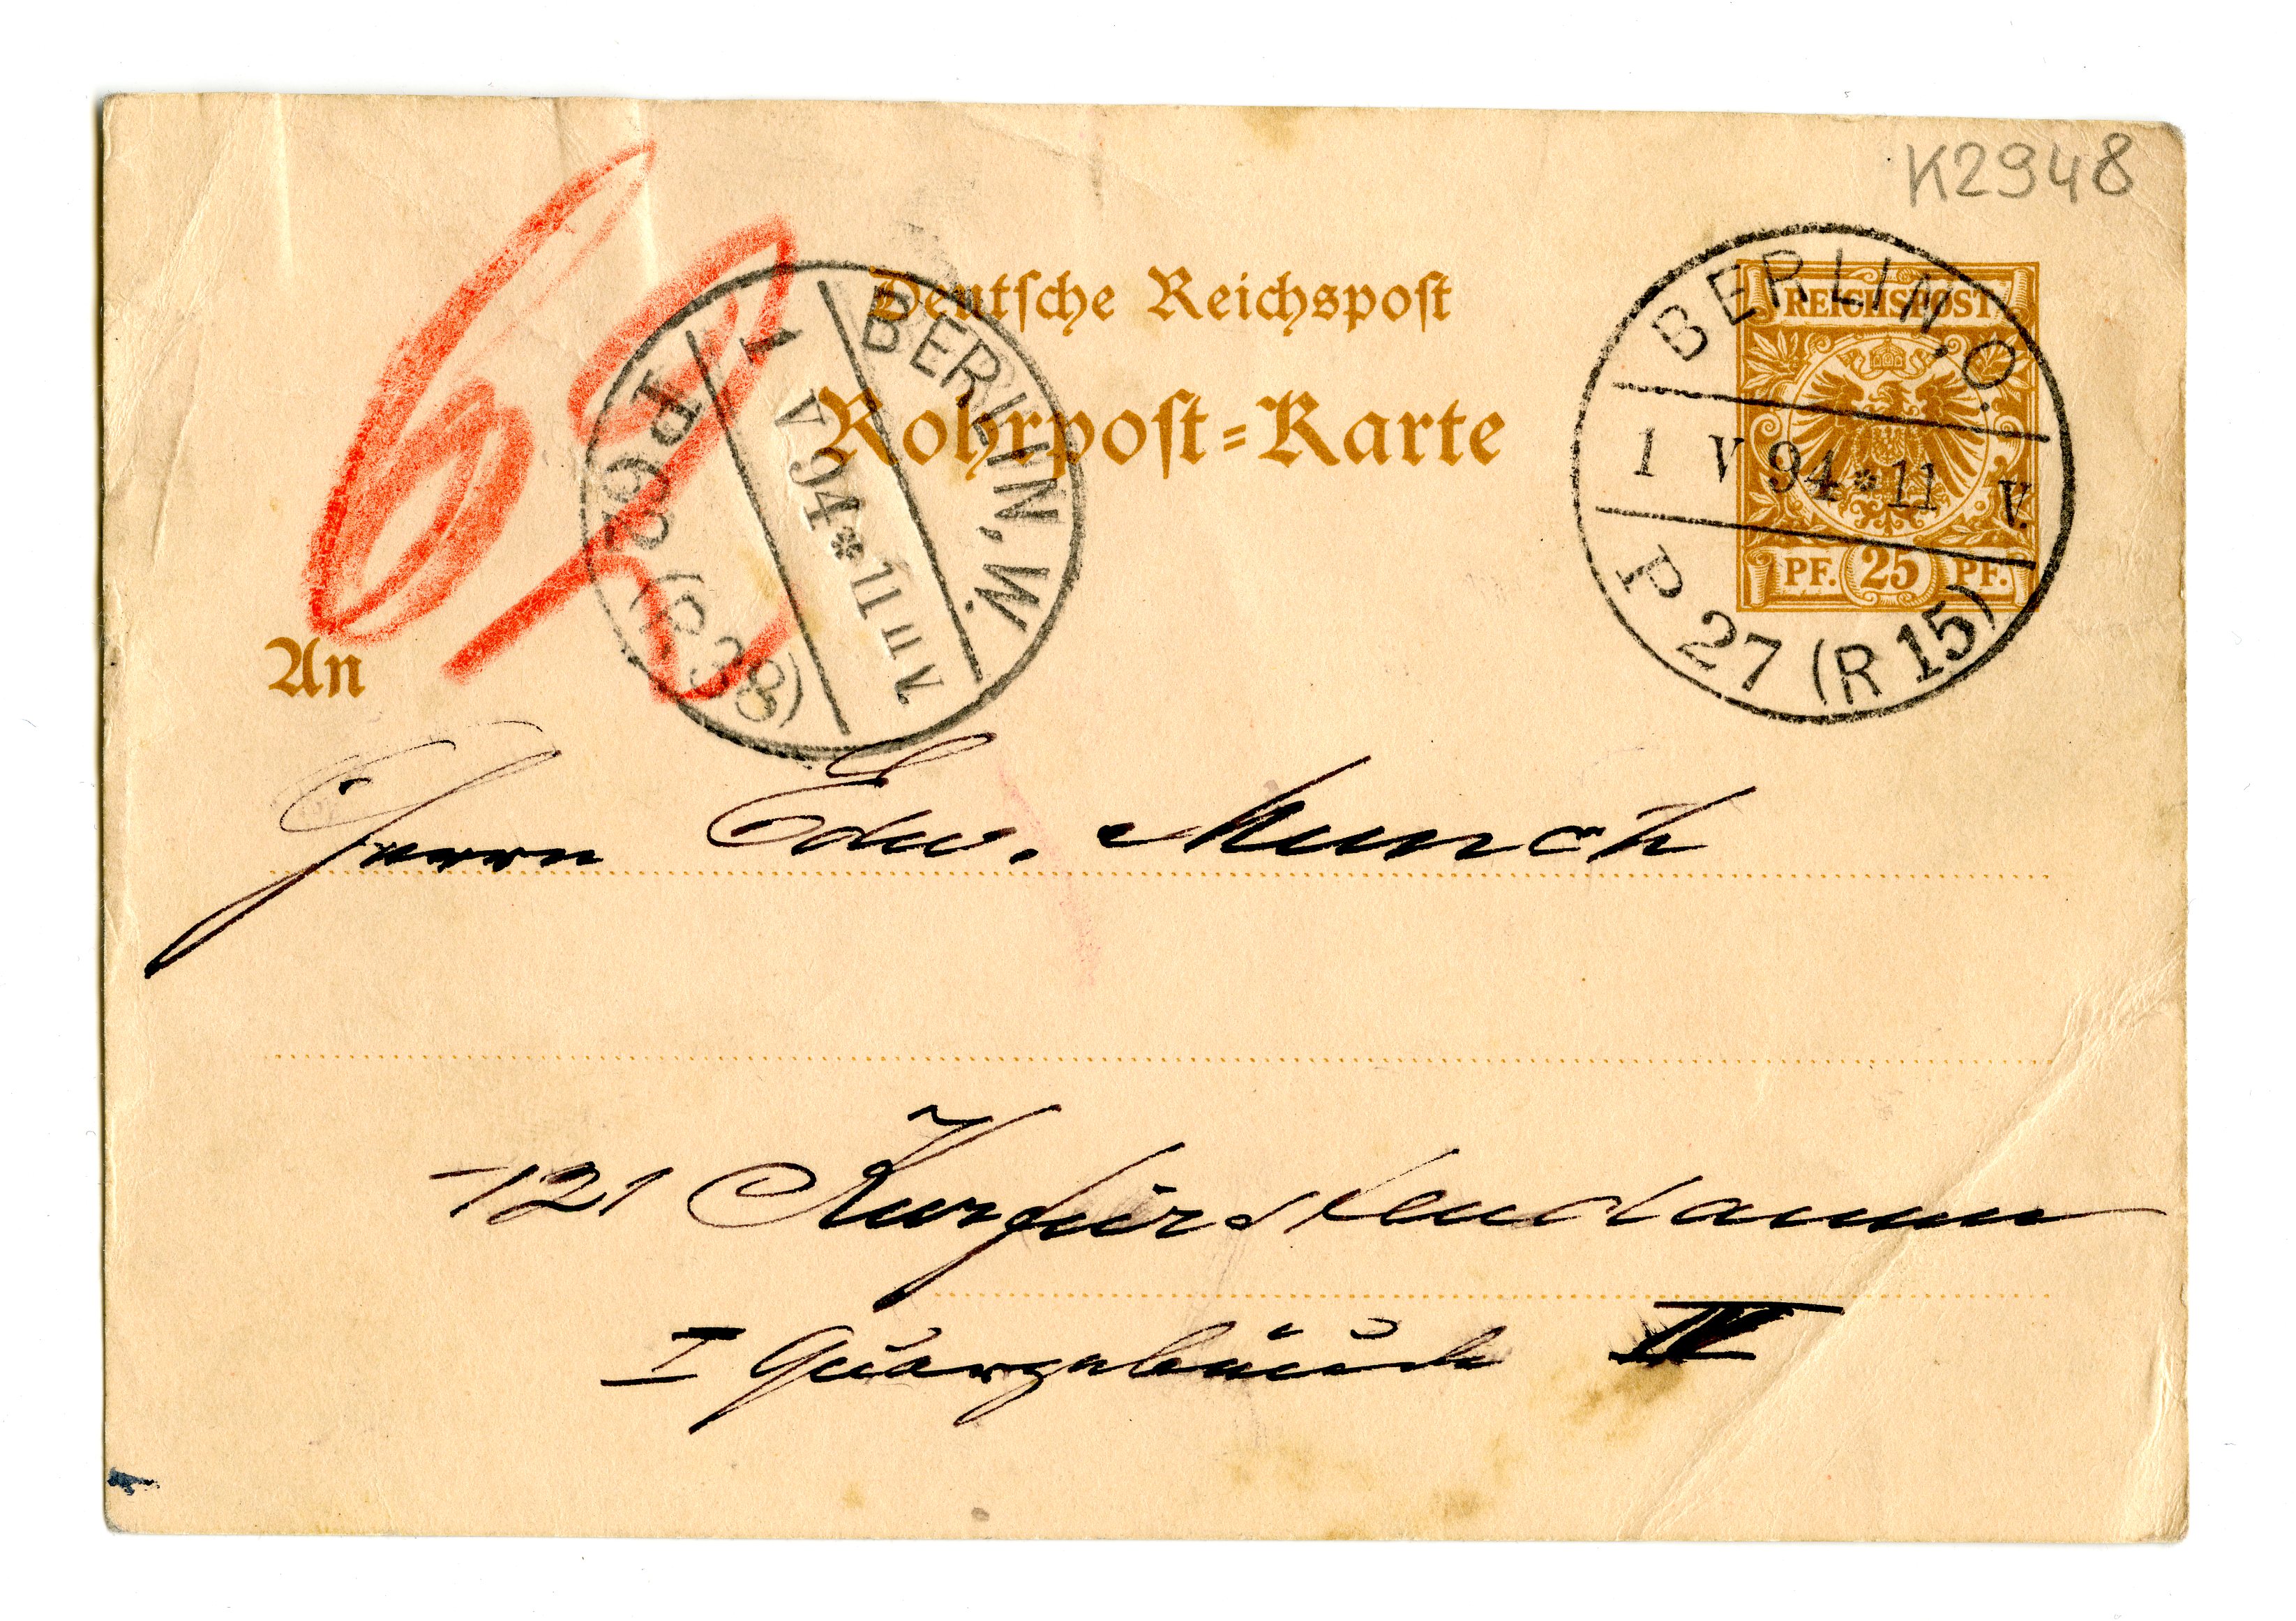 K2948
Deutsche Reichspost
Rohrpost-Karte
BERLIN, W.
1 V 94 * 11
P 62 (R 38)
BERLIN, O.
1 V 94 * 11 V.
P 27 (R 15)
REICHSPOST
PF. 25 PF.
An
Herrn Edw. Munch
121 Kurfürstendamm
I Quergebäude IV